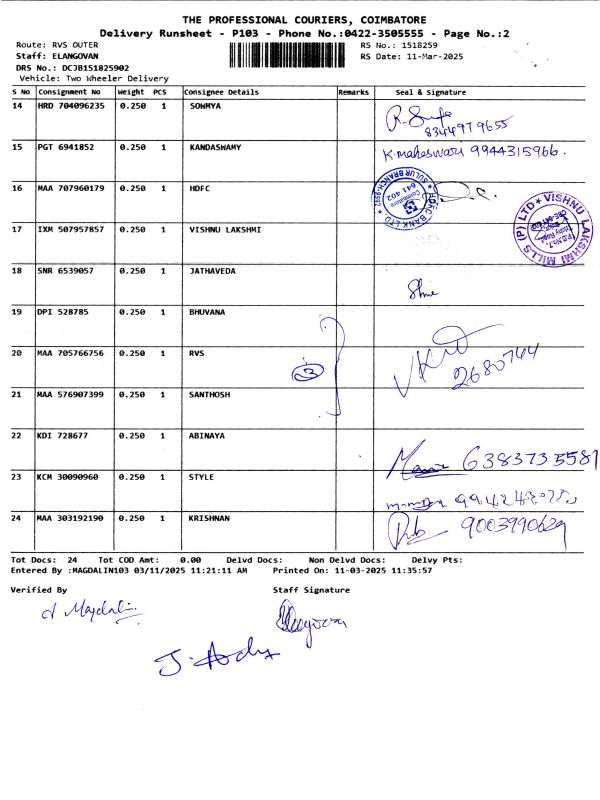 THE PROFESSIONAL COURIERS, COIMBATORE
Delivery Runsheet - P103 - Phone No.:0422-3505555 - Page No.:2
Route: RVS OUTER RS No.: 1518259
Staff: ELANGOVAN RS Date: 11-Mar-2025
DRS No.: DCJB151825902
Vehicle: Two Wheeler Delivery
S No Consignment No Weight PCS Consignee Details Remarks Seal & Signature
14 HRD 704096235 0.250 1 SOWMYA
8344979655
15 PGT 6941852 0.250 1 KANDASWAMY K.maheswari 9944315966.
16 MAA 707960179 0.250 1 HDFC
HDFC BANK LTD * SULUR BRANCH-9592 *
Coimbatore
641 402
17 IXM 507957857 0.250 1 VISHNU LAKSHMI
VISHNU LAKSHMI MILLS (P) LTD
18 SNR 6539057 0.250 1 JATHAVEDA
19 DPI 528785 0.250 1 BHUVANA
20 MAA 705766756 0.250 1 RVS 3
2680744
21 MAA 576907399 0.250 1 SANTHOSH
22 KDI 728677 0.250 1 ABINAYA 6383735581
23 KCM 30090960 0.250 1 STYLE
24 MAA 303192190 0.250 1 KRISHNAN 9003990629
Tot Docs: 24 Tot COD Amt: 0.00 Delvd Docs: Non Delvd Docs: Delvy Pts:
Entered By :MAGDALIN103 03/11/2025 11:21:11 AM Printed On: 11-03-2025 11:35:57
Verified By Staff Signature
Magdalin